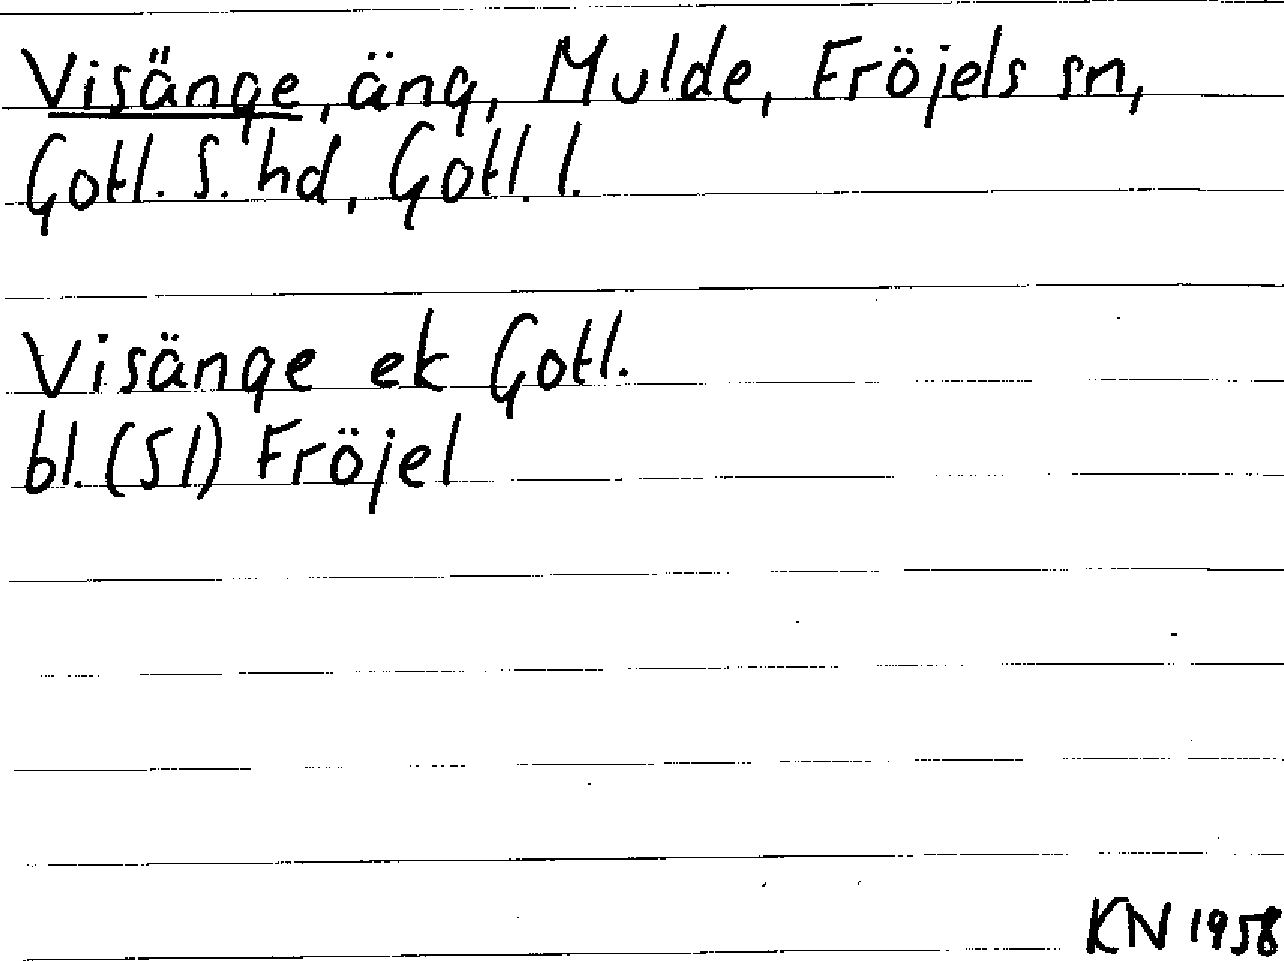 Visänge, äng, Mulde, Fröjels sn,
Gotl. S. hd, Gotl. l.
Visänge ek Gotl.
bl. (51) Fröjel
KN 1958